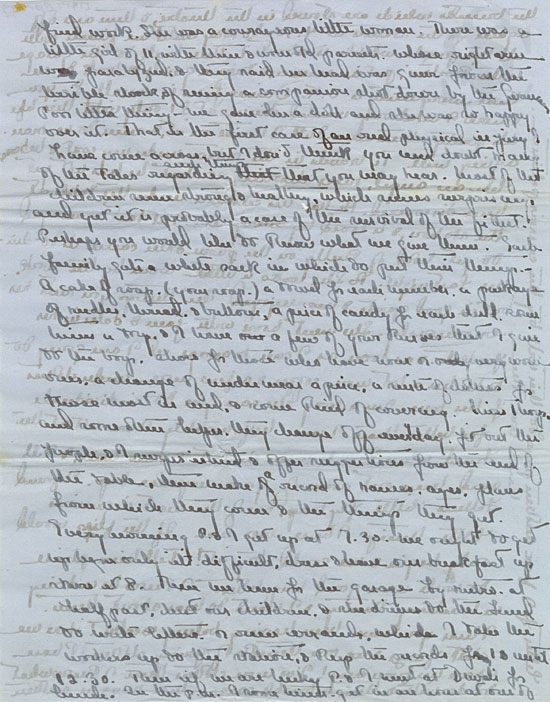 work. She was a courageous little woman. There was a
little girl of 11, with them & with the parents, whose right arm
was paralyzed, & they said the was given from the
terrible shock of seeing a companion shot down by the
Poor little thing! we gave her a doll and she was so happy
over it. That is the first case of an real physical injury I
have come across, but I don't think you need doubt many
of the tales regarding them that you may hear. Most of the
children were strong & healthy, which seems surprising,
and yet it is probably a case of the survival of the fittest.
Perhaps you would like to know what we give them. Each
family gets a white sack in which to put their things:-
A cake of soap, (your soap.) a towel for each member, a package
of needles, thread, & buttons, a piece of candy for each child, some
times a toy, & I have a few of your that I give
to the boys. shoes for those who have none or very worn
ones, a change of underwear a piece, a suite of clothes for
those most in need, & some kind of covering
and some other judges. they change off everyday, fit out the
people, & I superintend & offer suggestions from the end of
the table, then make a record of names, ages, place
from which they come & the things they get.
Every morning P. & I get up at 7.30. we ought to get
up but only it's difficult, dress & have our breakfast up
stairs at 8. Then we leave for the garage by metro. at
half past, & she drives to the
to write letters, or some errands, while I take the
workers up to the , & keep the records for 10 until
12.30. Then if we are lucky P. & I meet at Duval's for
lunch. In the P.M. I sometimes get in an hour at one of